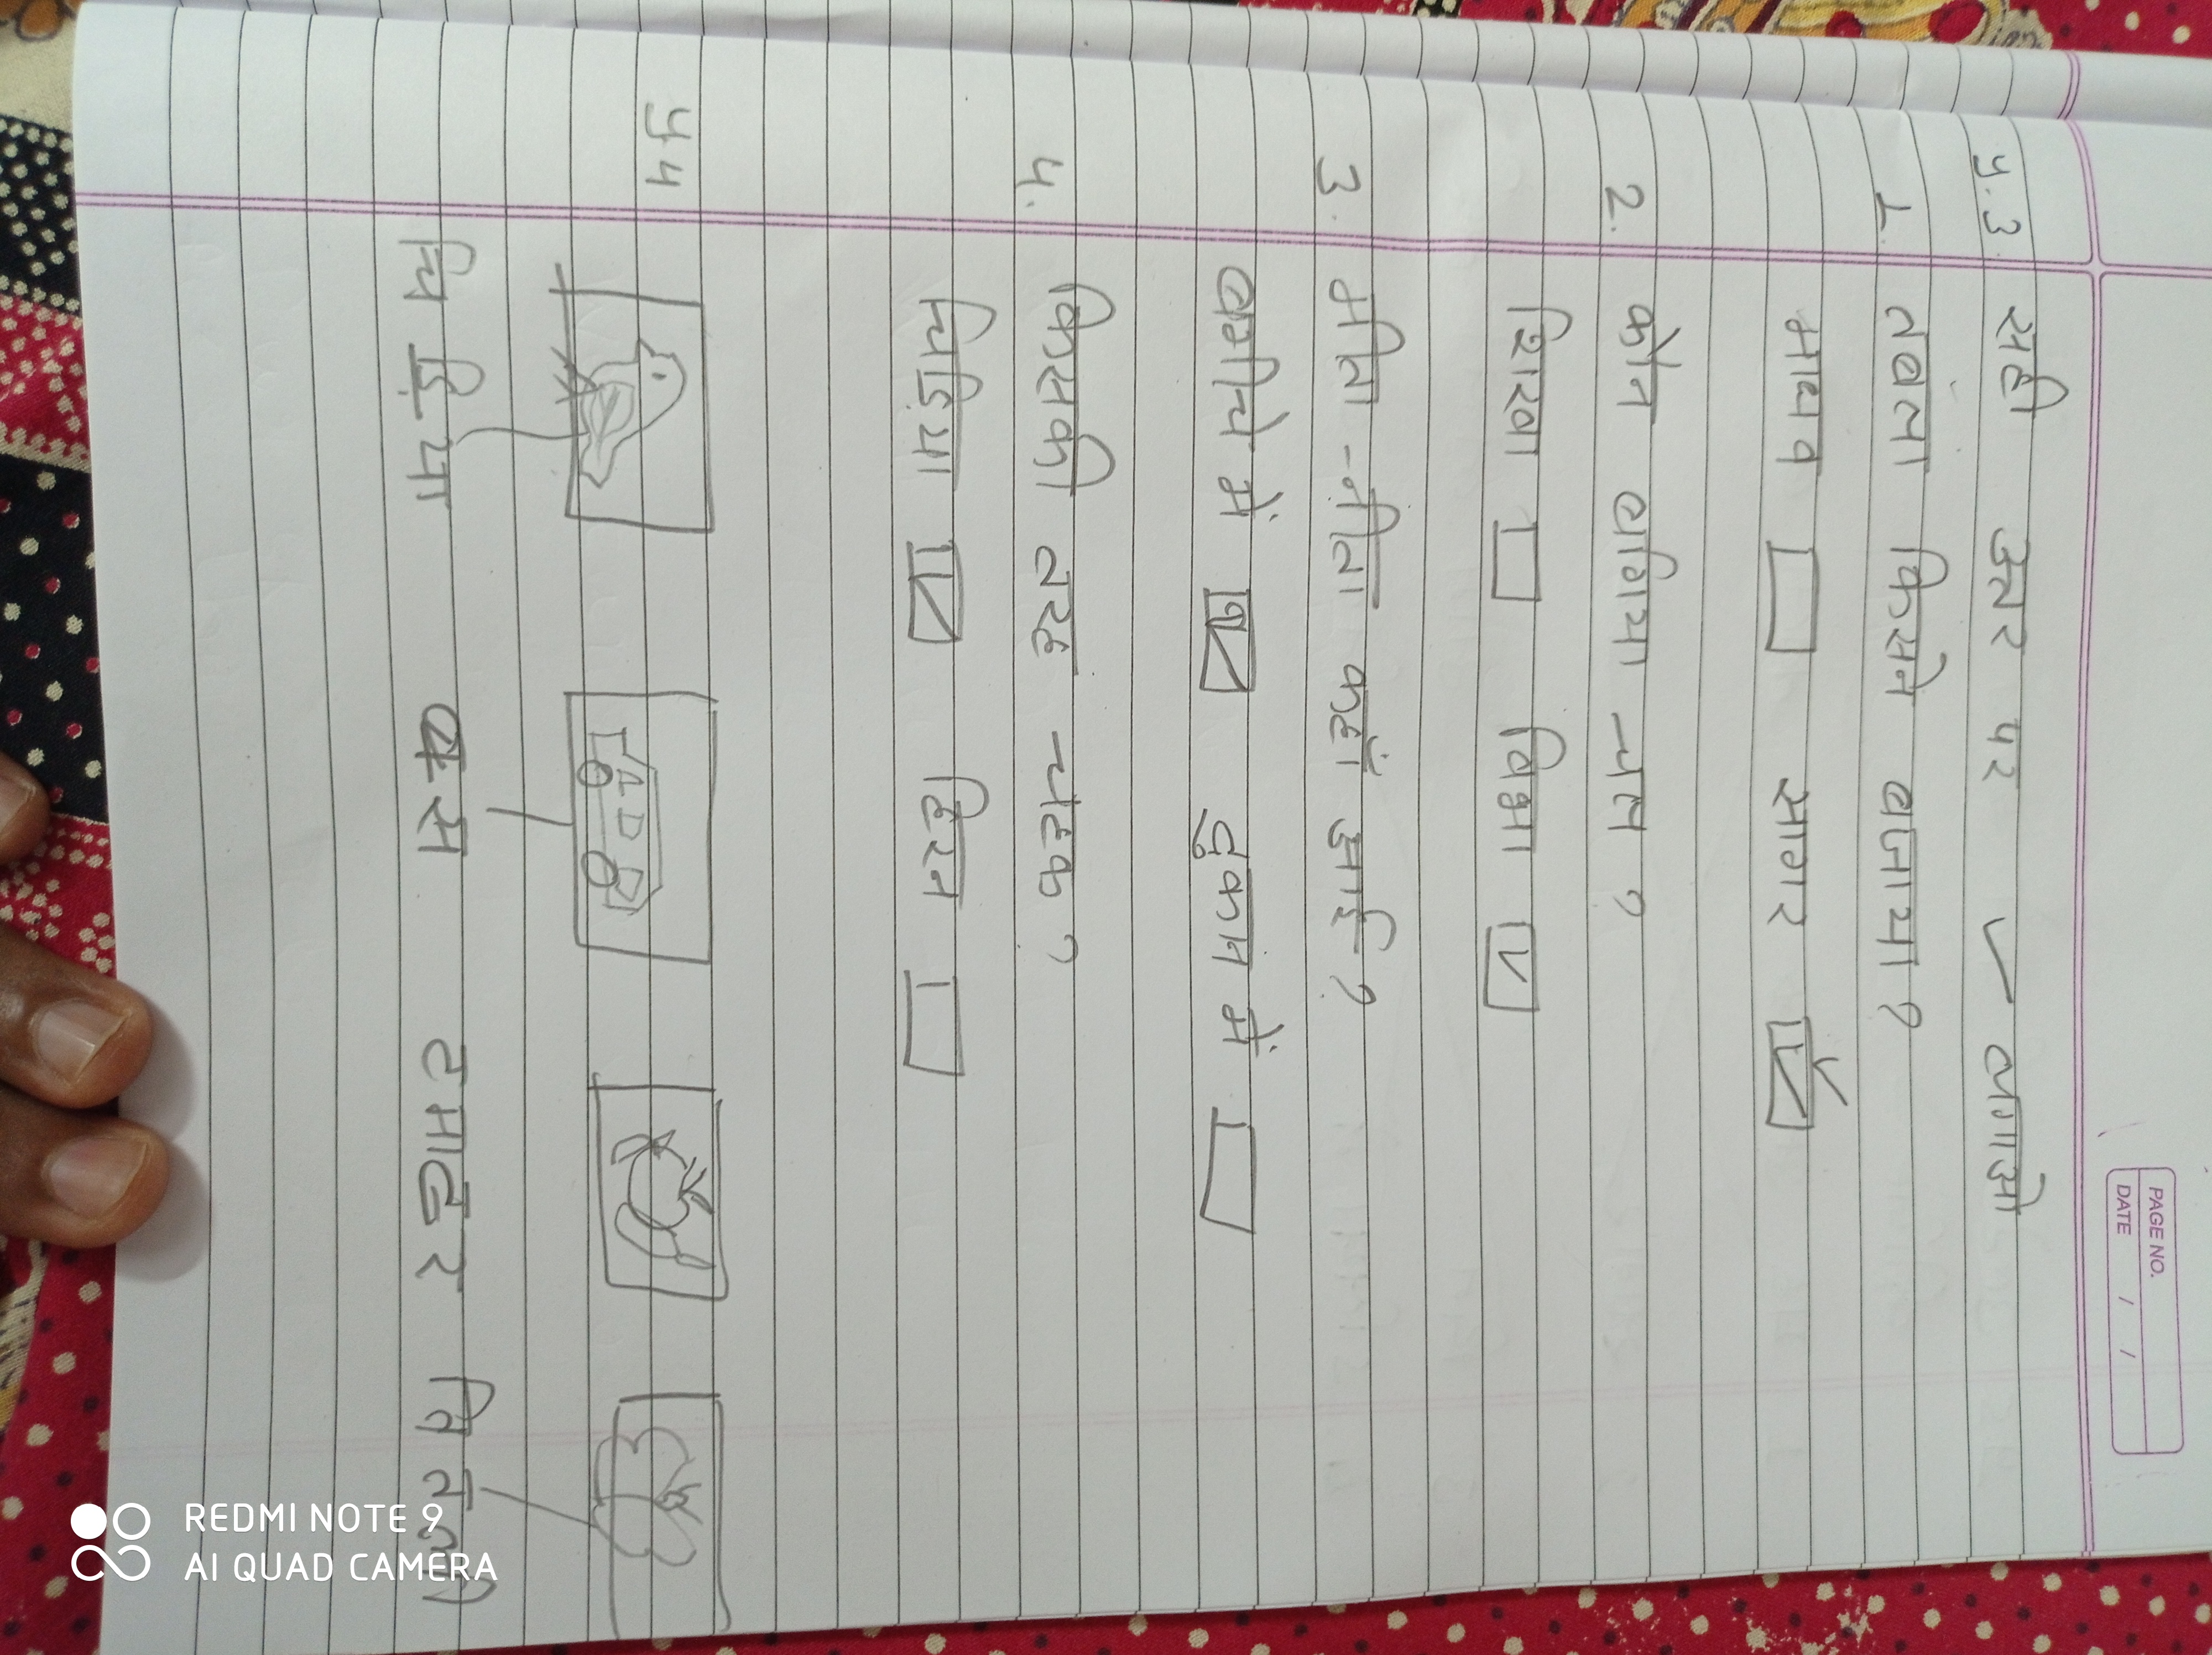 PAGE NO.
DATE / /
प्र.3 सही उत्तर पर ✓ लगाओ
1. तबला किसने बजाया?
माधव सागर ✓
2. कौन बगिया चल ?
शिखा विभा ✓
3. मीना-नीना कहाँ आई?
बगीचे में ✓ दुकान में
4. किसकी तरह चहक?
चिड़िया ✓ हिरन
प्र4
चिड़िया बस टमाटर तितली
REDMI NOTE 9
AI QUAD CAMERA